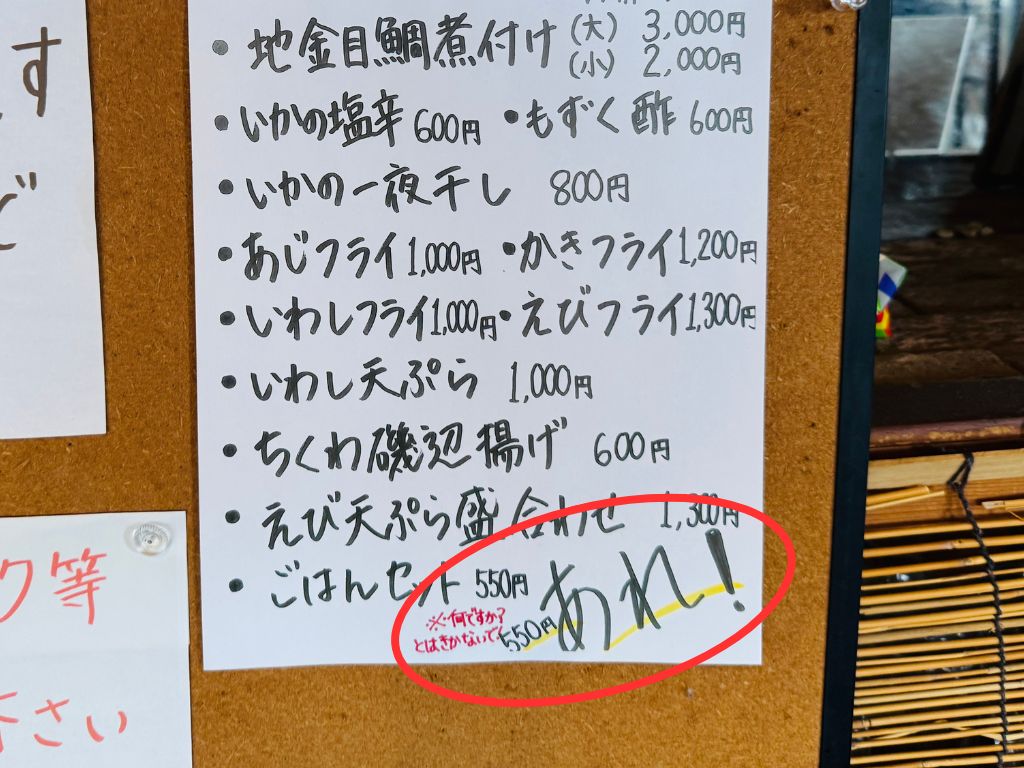 ・地金目鯛煮付け (大) 3,000円
(小) 2,000円
・いかの塩辛 600円 ・もずく酢 600円
・いかの一夜干し 800円
・あじフライ 1,000円 ・かきフライ 1,200円
・いわしフライ 1,000円 ・えびフライ 1,300円
・いわし天ぷら 1,000円
・ちくわ磯辺揚げ 600円
・えび天ぷら盛合わせ 1,300円
・ごはんセット 550円
※何ですか?
とはきかないで
550円 あれ!
す
ど
ク等
下さい